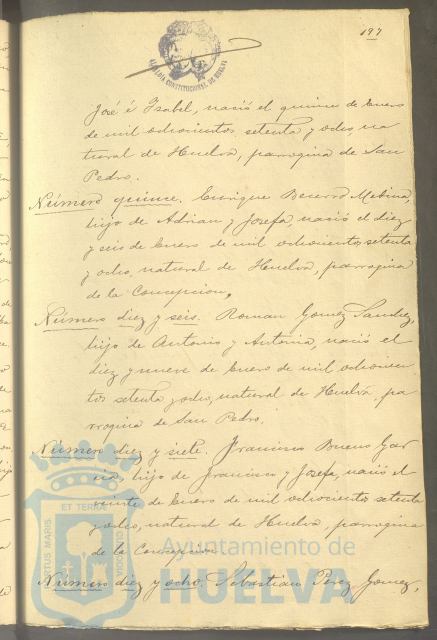 197
ALCALDÍA CONSTITUCIONAL DE HUELVA
José é Isabel, nació el quince de Enero
de mil ochocientos setenta y ocho na
tural de Huelva, parroquia de San
Pedro.
Número quince. Enrique Becerro Medina,
hijo de Adrian y Josefa, nació el diez
y seis de Enero de mil ochocientos setenta
y ocho, natural de Huelva, parroquia
de la Concepcion.
Número diez y seis. Roman Gomez Sanchez,
hijo de Antonio y Antonia, nació el
diez y nueve de Enero de mil ochocien
tos setenta y ocho, natural de Huelva, pa
rroquia de San Pedro.
Número diez y siete. Francisco Bueno Gar
cia, hijo de Francisco y Josefa, nació el
veinte de Enero de mil ochocientos setenta
y ocho, natural de Huelva, parroquia
de la Concepcion.
Número diez y ocho. Sebastian Perez Gomez,
PORTUS MARIS ET TERRAE CUSTODIA
Ayuntamiento de
HUELVA